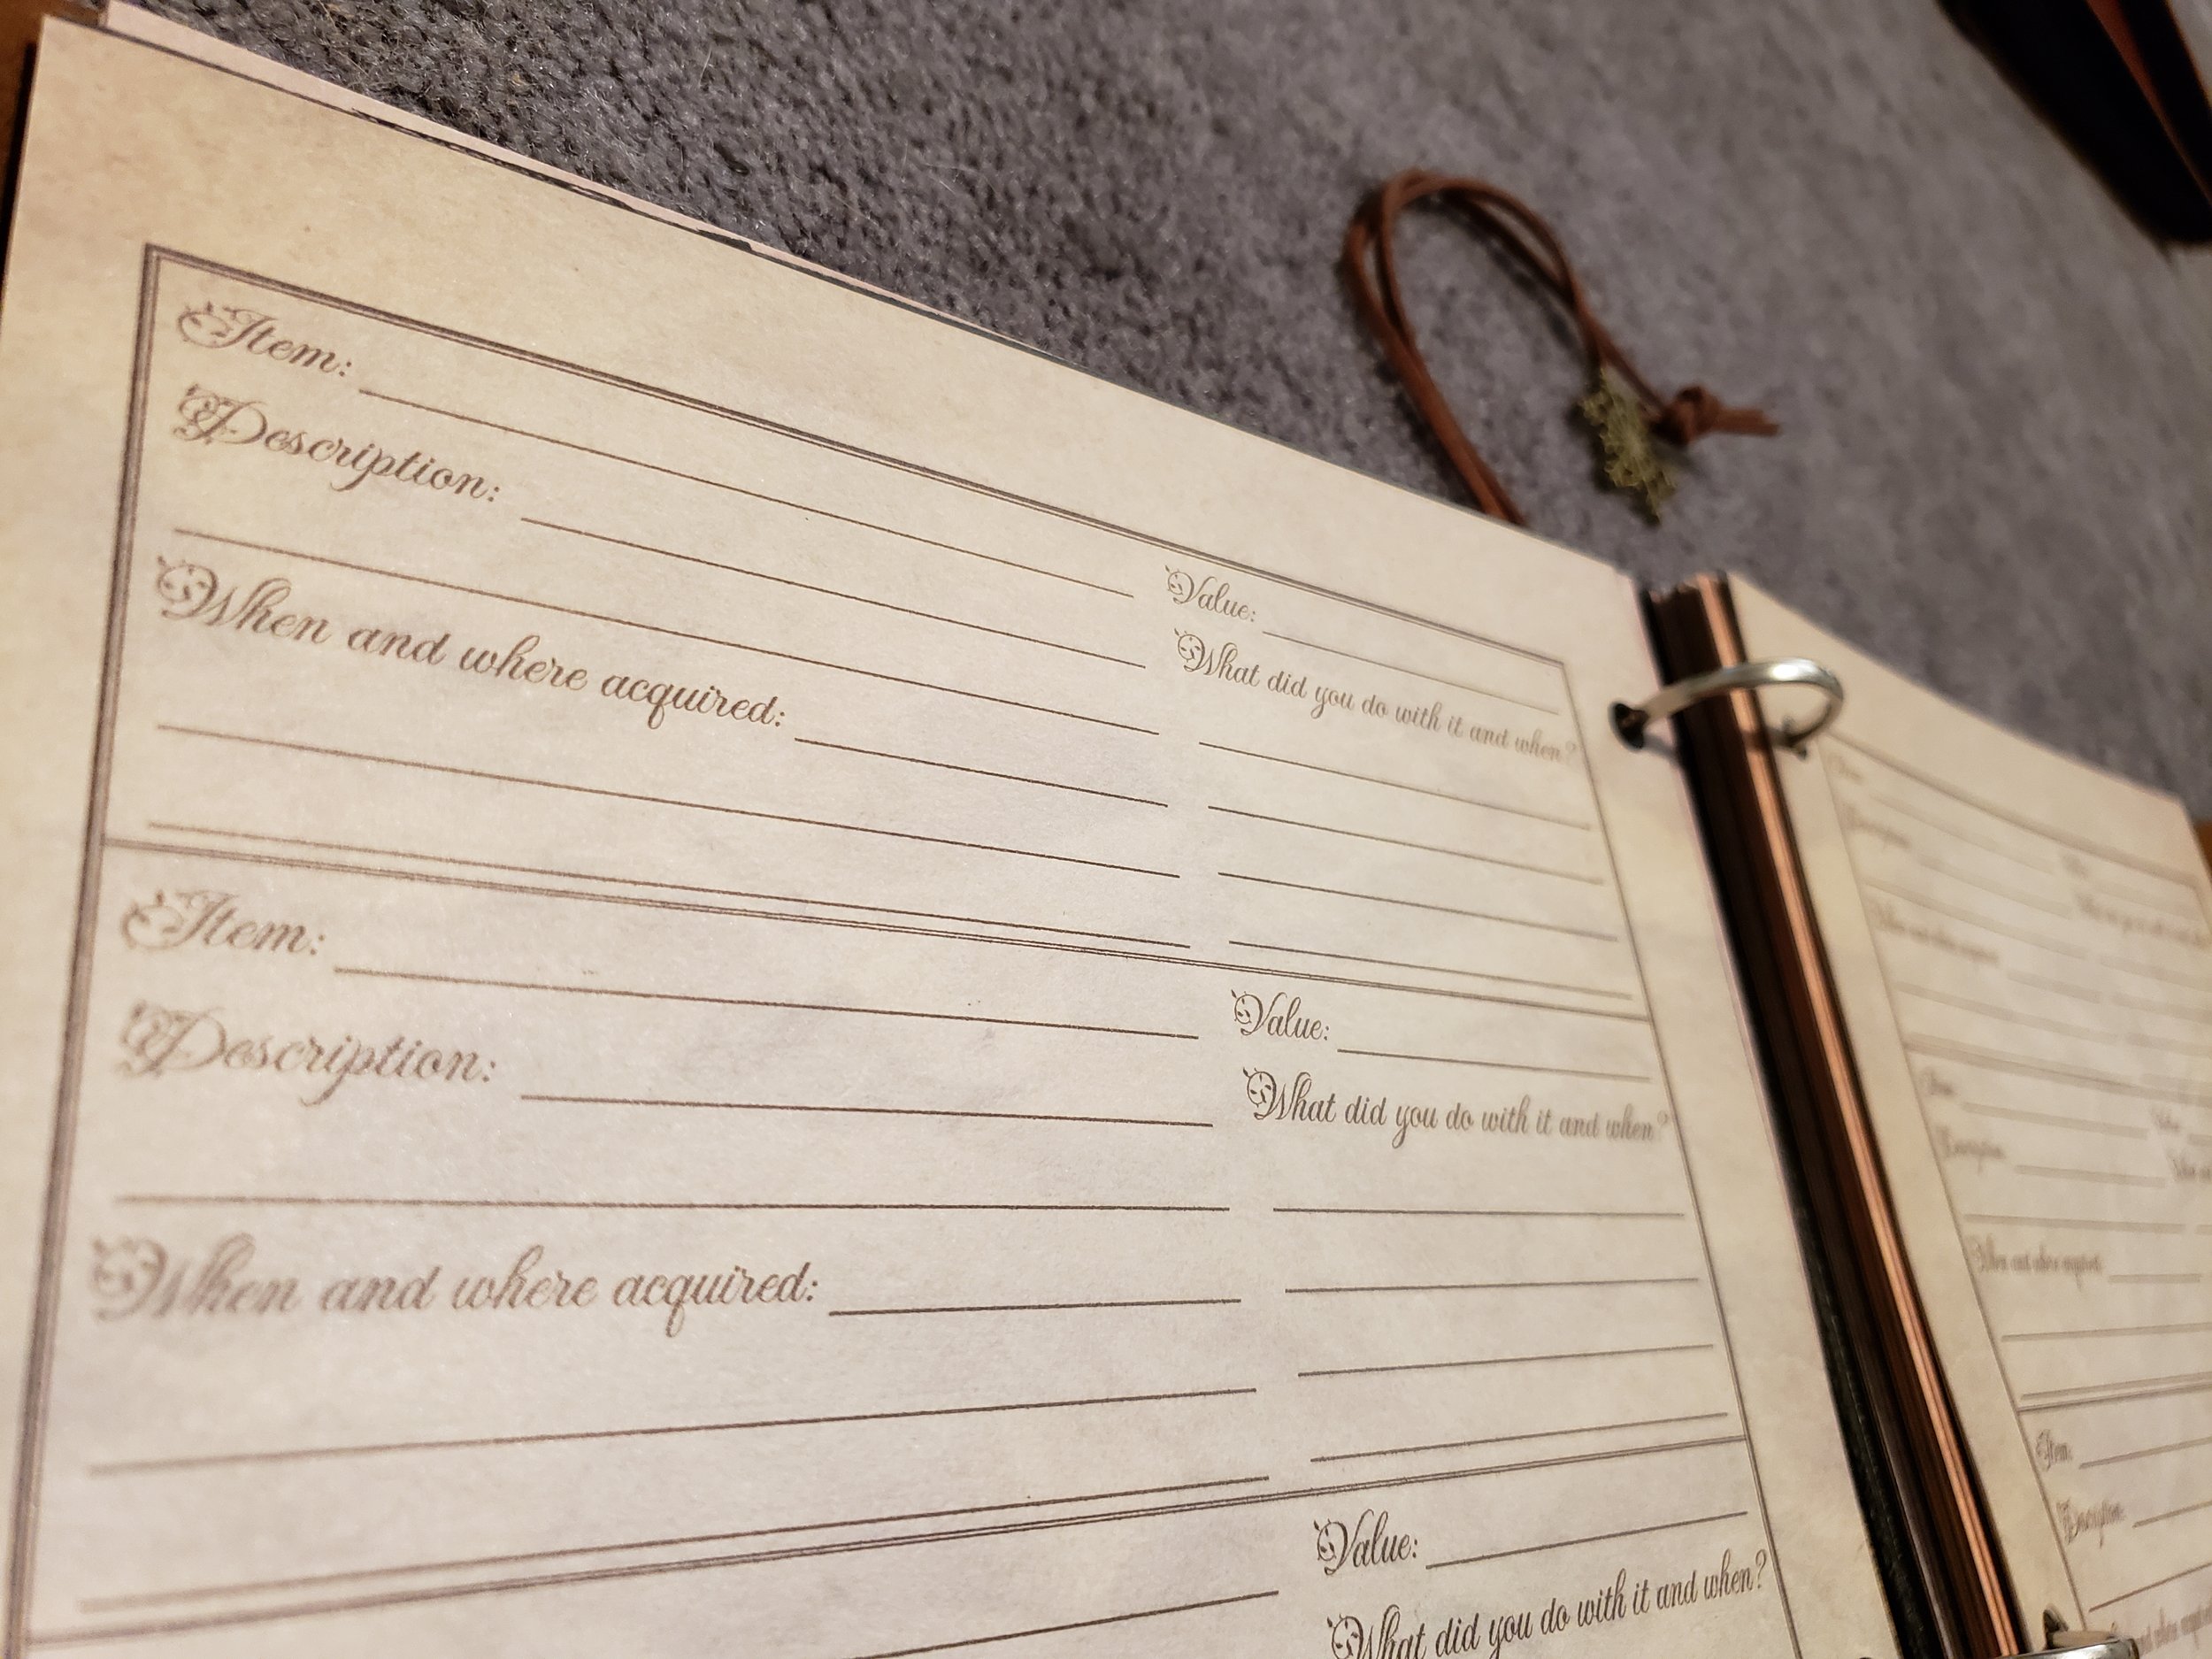 Item:
Description:
When and where acquired:
Value:
What did you do with it and when?
Item:
Description:
When and where acquired:
Value:
What did you do with it and when?
Value:
What did you do with it and when?
Item:
Description:
When and where acquired:
Item:
Description: